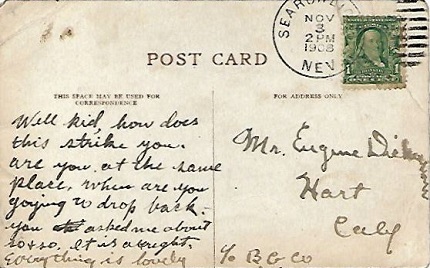 SEARCHLIGHT
NOV
3
2 PM
1908
NEV.
POST CARD
THIS SPACE MAY BE USED FOR
CORRESPONDENCE
FOR ADDRESS ONLY
Well kid, how does
this strike you.
are you at the same
place, when are you
goying to drop back.
you asked me about
so & so. it is allright.
Everything is lovely
Mr. Eugene
Hart
Caly
c/o B G Co
1 1